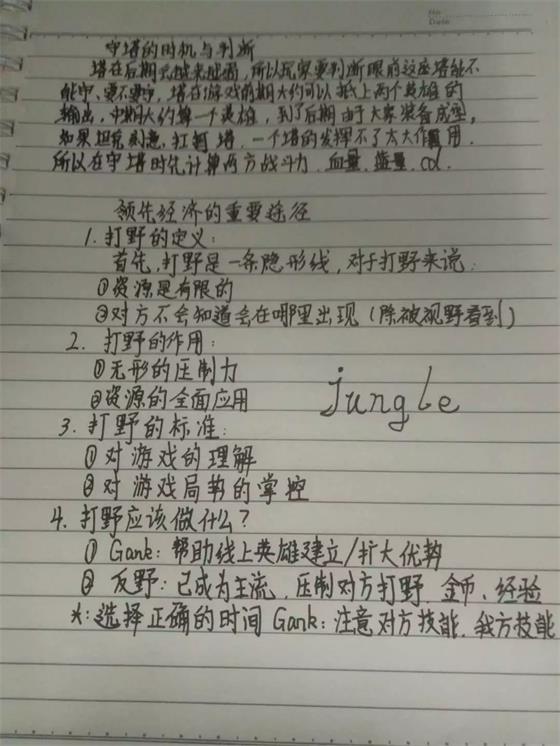 No.
Date
守塔的时机与判断
塔在后期会越来越弱,所以玩家要判断眼前这座塔能不
能守、要不要守,塔在游戏前期大约可以抵上两个英雄的
输出,中期大约算一个英雄,到了后期由于大家装备成型,
如果坦克刻意打掉塔,一个塔的发挥不了太大作用.
所以在守塔时先计算两方战斗力、血量、蓝量、cd.
领先经济的重要途径
1. 打野的定义:
首先,打野是一条隐形线,对于打野来说:
①资源是有限的
②对方不会知道会在哪里出现(除被视野看到)
2. 打野的作用:
①无形的压制力
②资源的全面应用
jungle
3. 打野的标准:
①对游戏的理解
②对游戏局势的掌控
4. 打野应该做什么?
① Gank: 帮助线上英雄建立/扩大优势
② 反野: 已成为主流、压制对方打野、金币、经验
*: 选择正确的时间Gank: 注意对方技能、我方技能